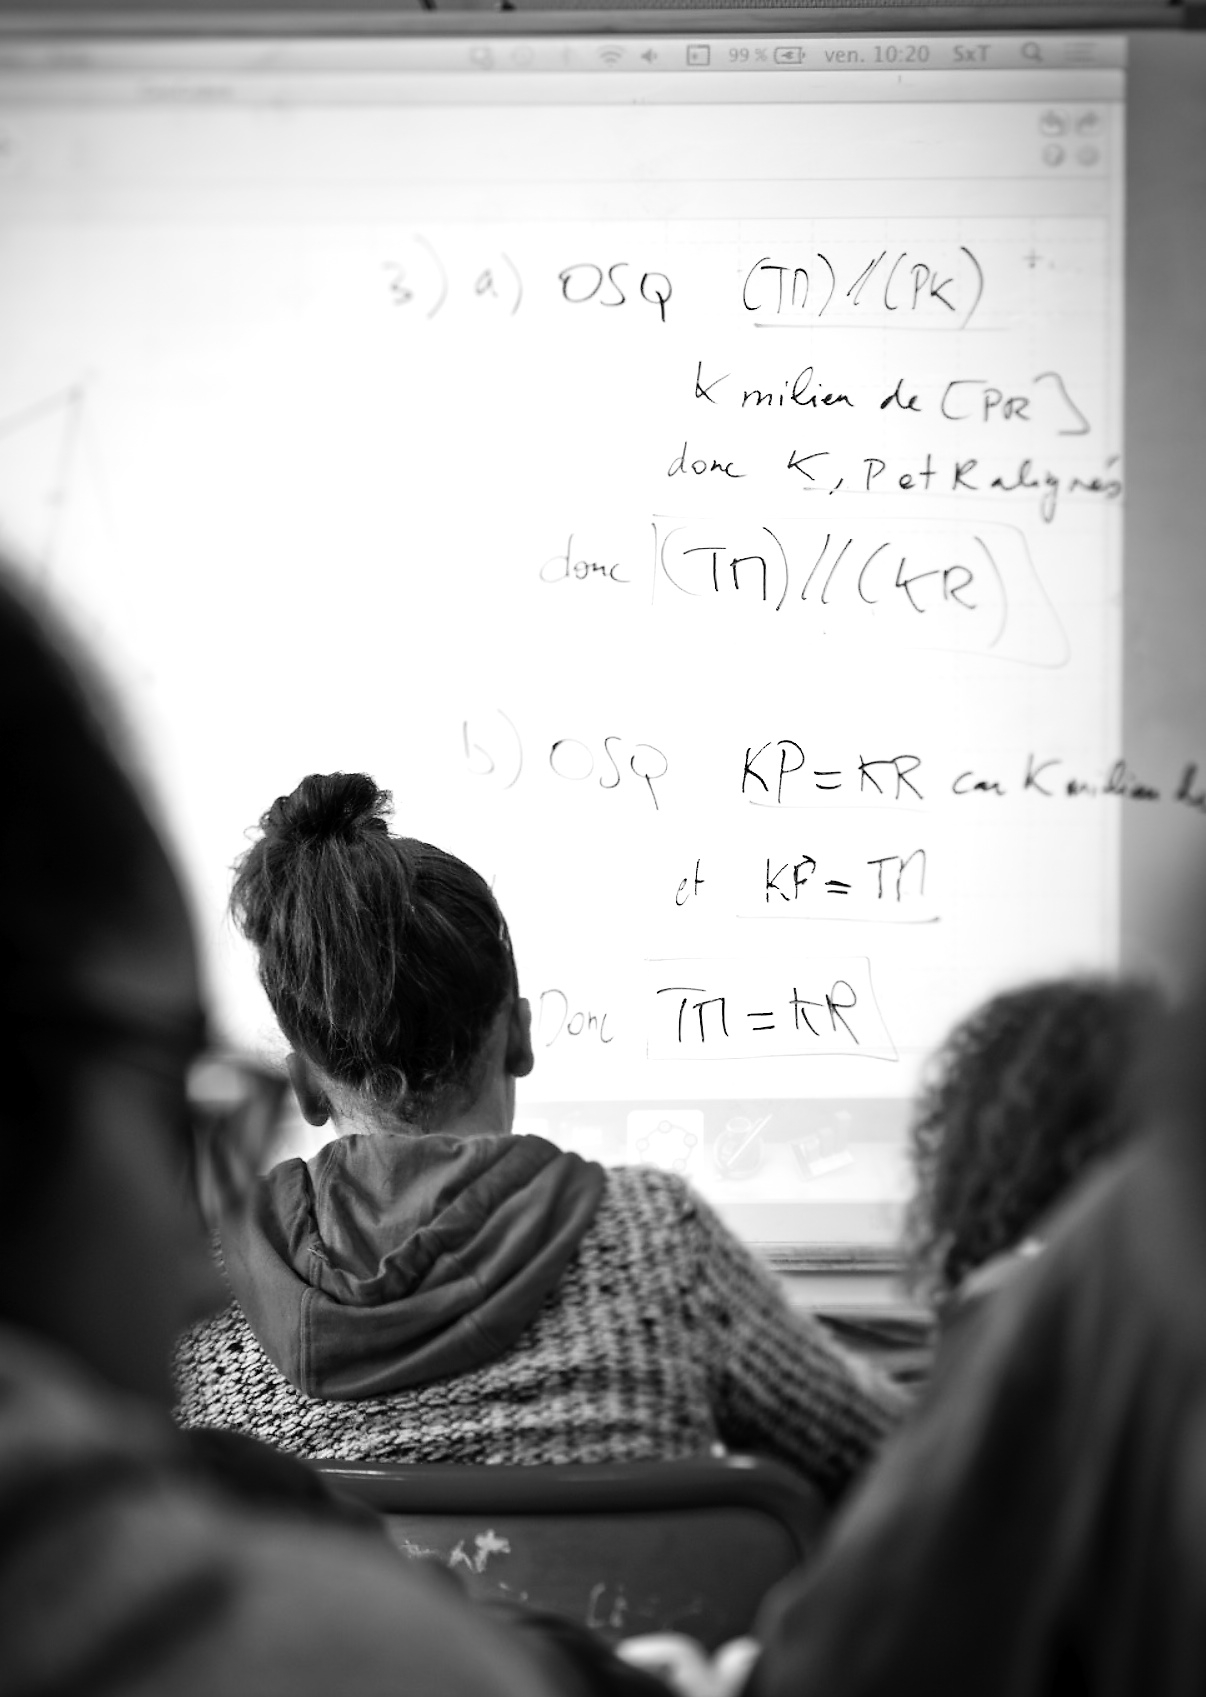 99 % ven. 10:20 SxT
3) a) OSQ (TM) // (PK)
K milieu de [PR]
donc K, P et R alignés
donc (TM) // (KR)
b) OSQ KP = KR car K milieu de
et KP = TM
Donc TM = KR